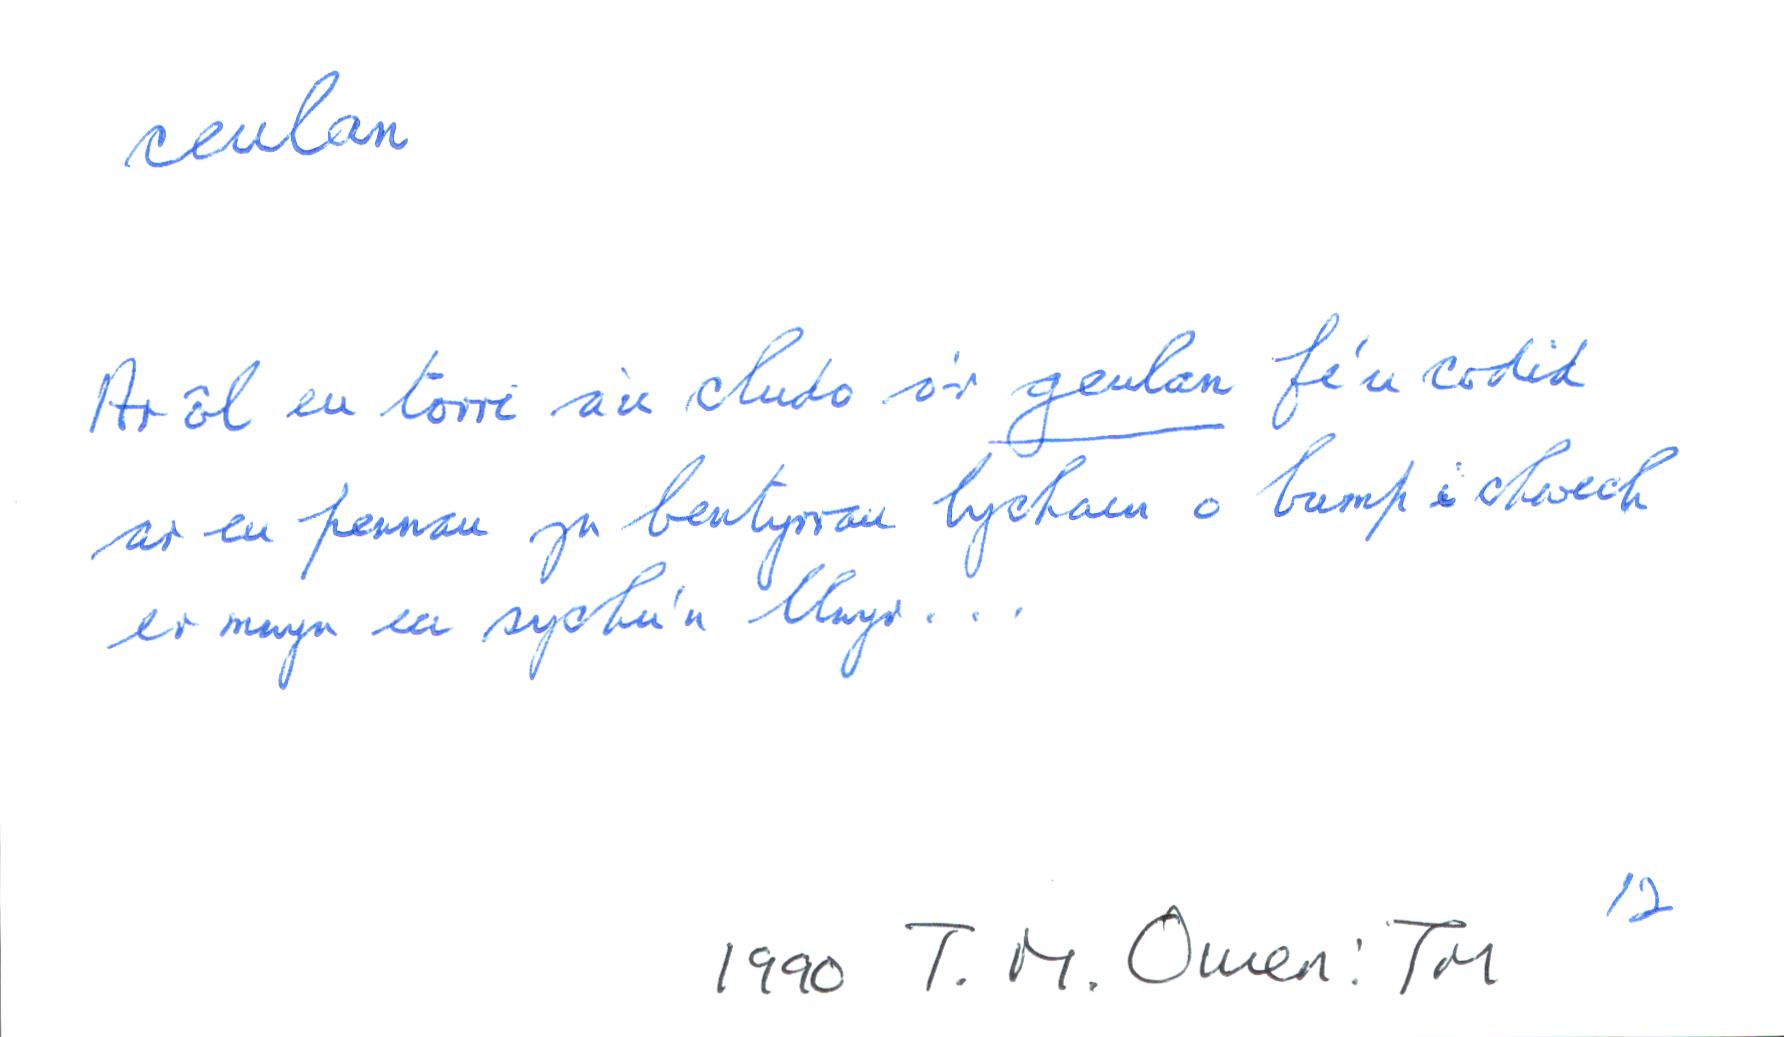 ceulan
Ar ôl eu torri a'u cludo o'r geulan fe'u codid
ar eu pennau yn bentyrrau bychain o bump i chwech
er mwyn eu sychu'n llwyr...
12
1990 T. M. Owen: TM